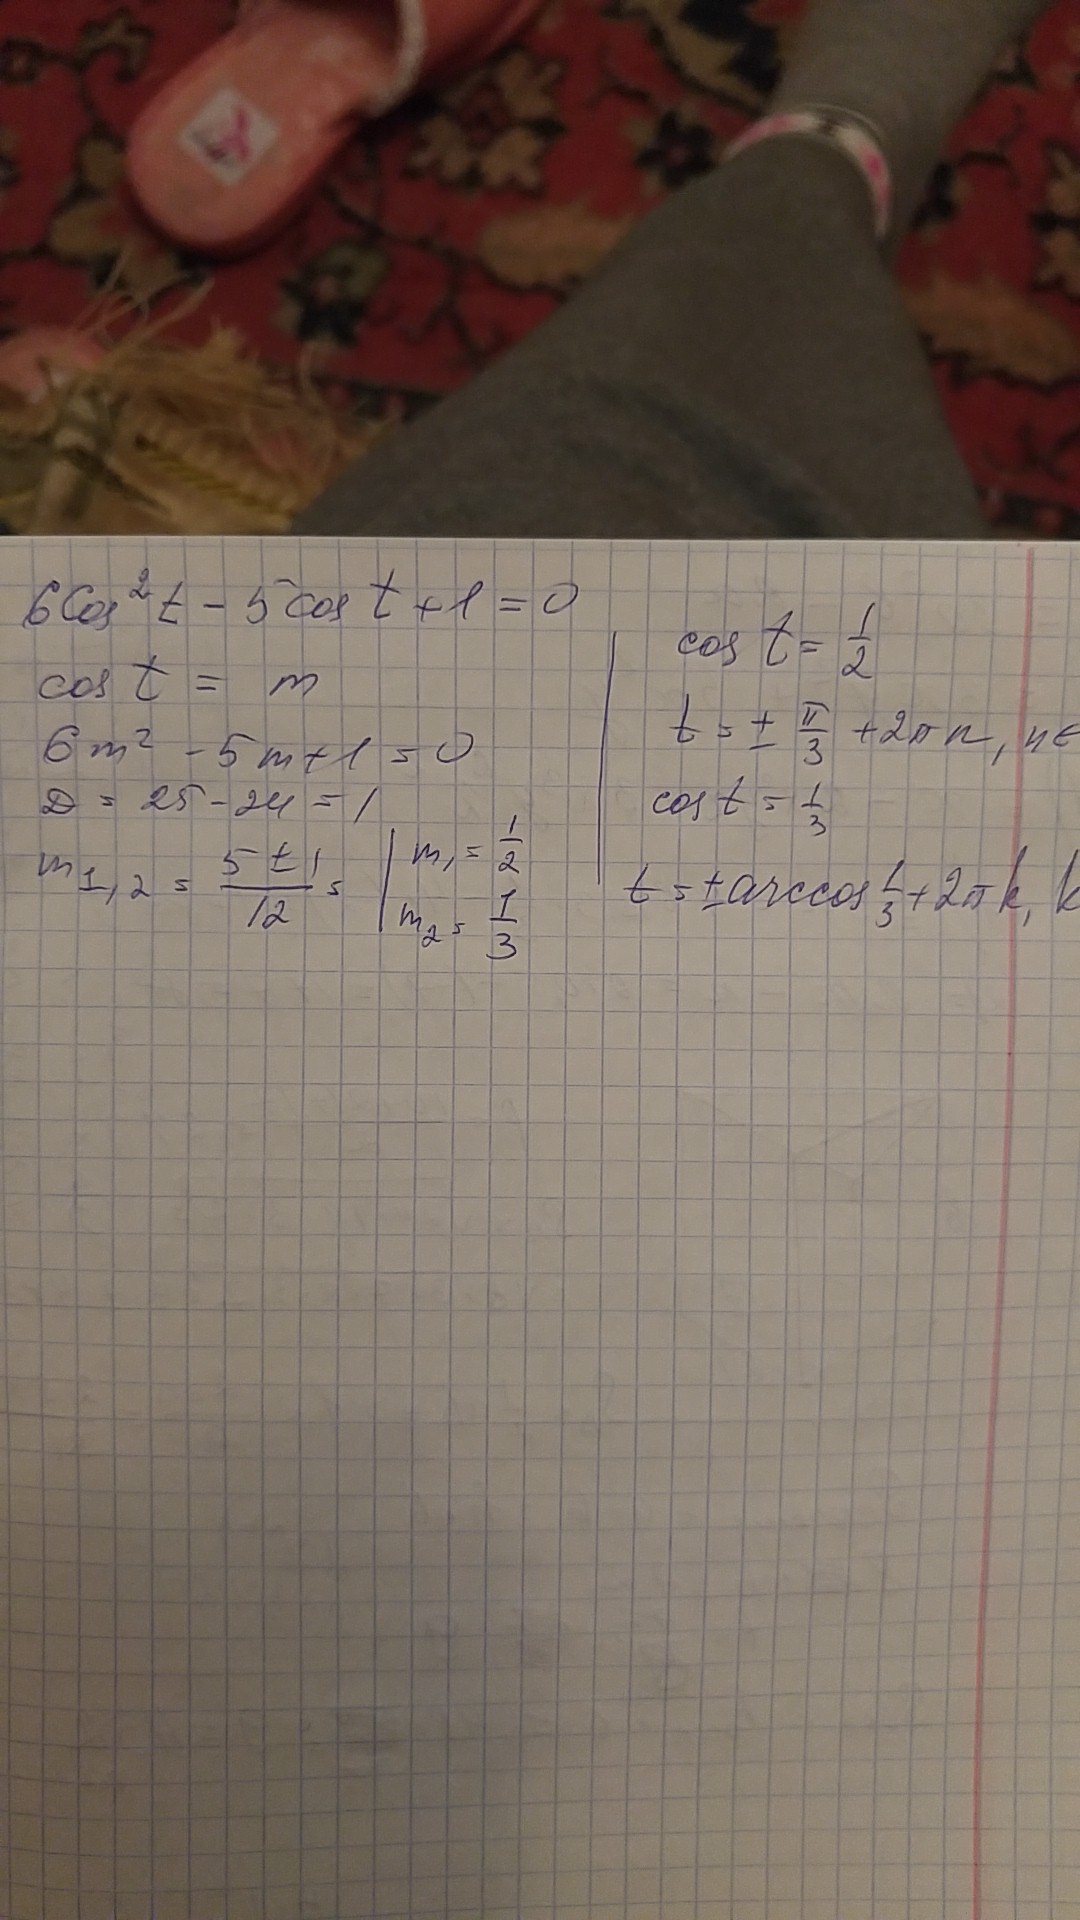 6cos²t - 5cos t + 1 = 0
cos t = m
6m² - 5m + 1 = 0
D = 25 - 24 = 1
m1,2 = (5 ± 1)/12 =
m1 = 1/2
m2 = 1/3
cos t = 1/2
t = ± π/3 + 2πn, n ∈
cos t = 1/3
t = ± arccos 1/3 + 2πk, k